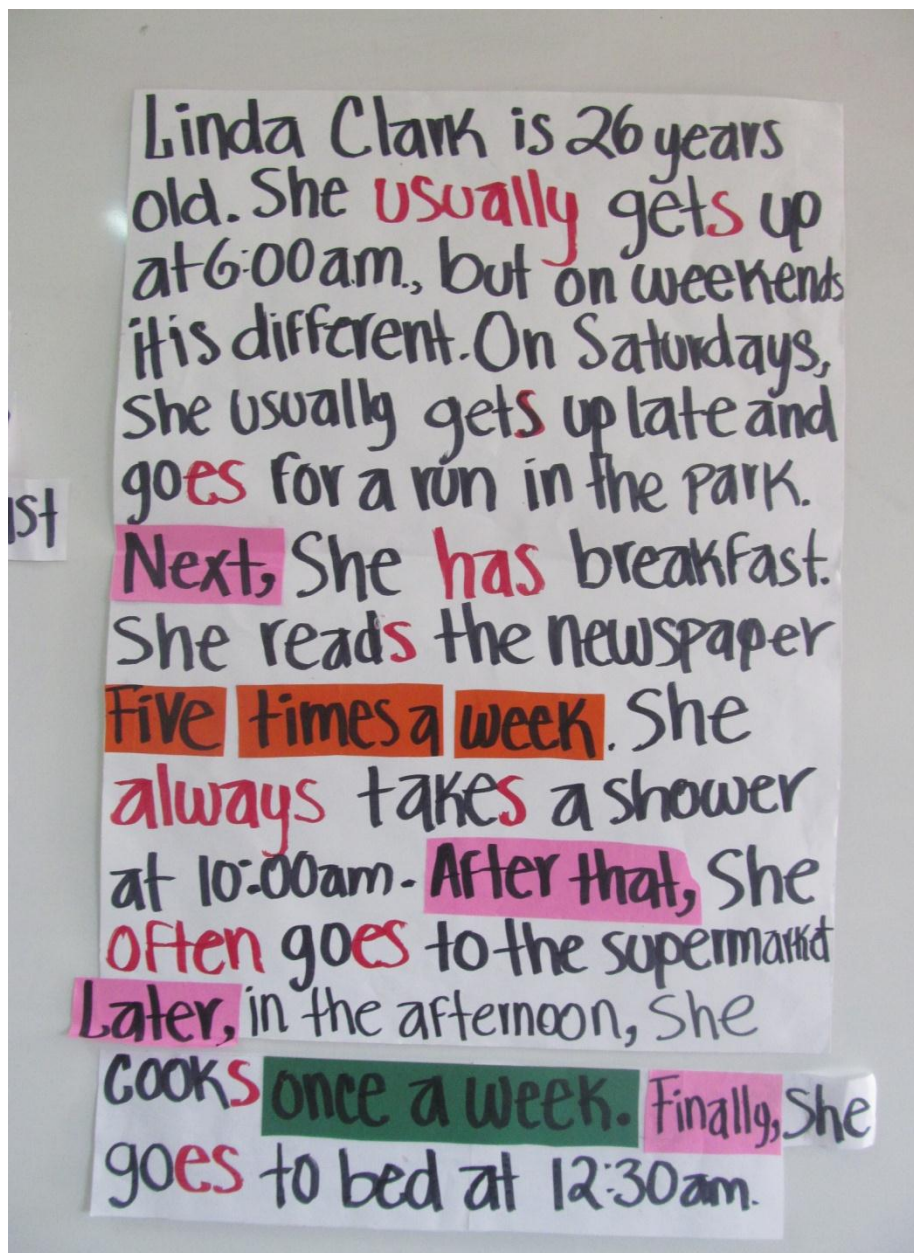 Linda Clark is 26 years
old. She usually gets up
at 6:00 a.m., but on weekends
it is different. On Saturdays,
she usually gets up late and
goes for a run in the park.
Next, She has breakfast.
She reads the newspaper
Five times a week. She
always takes a shower
at 10:00am. After that, She
often goes to the supermarket
Later, in the afternoon, She
cooks once a week. Finally, She
goes to bed at 12:30am.